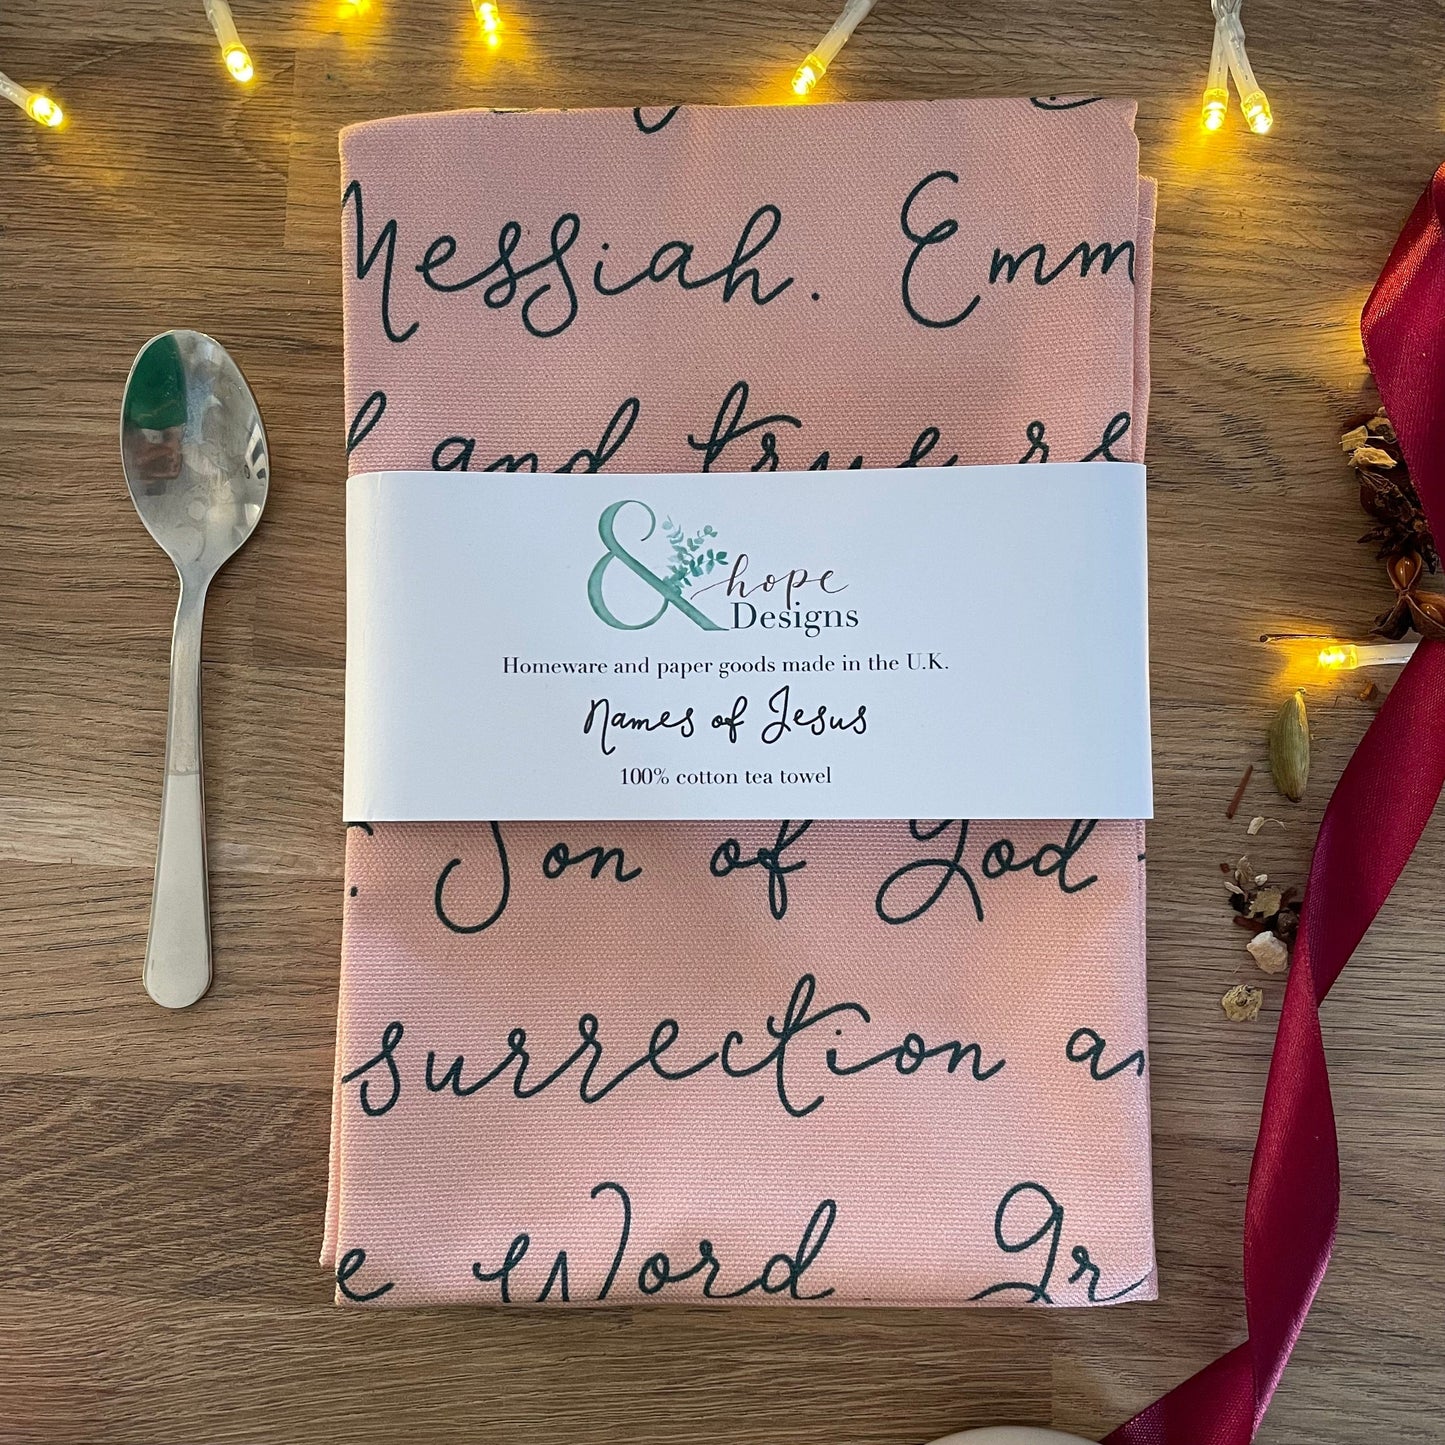 Messiah. Emm
and true re
& hope
Designs
Homeware and paper goods made in the U.K.
Names of Jesus
100% cotton tea towel
Son of God
surrection a
e Word Gr